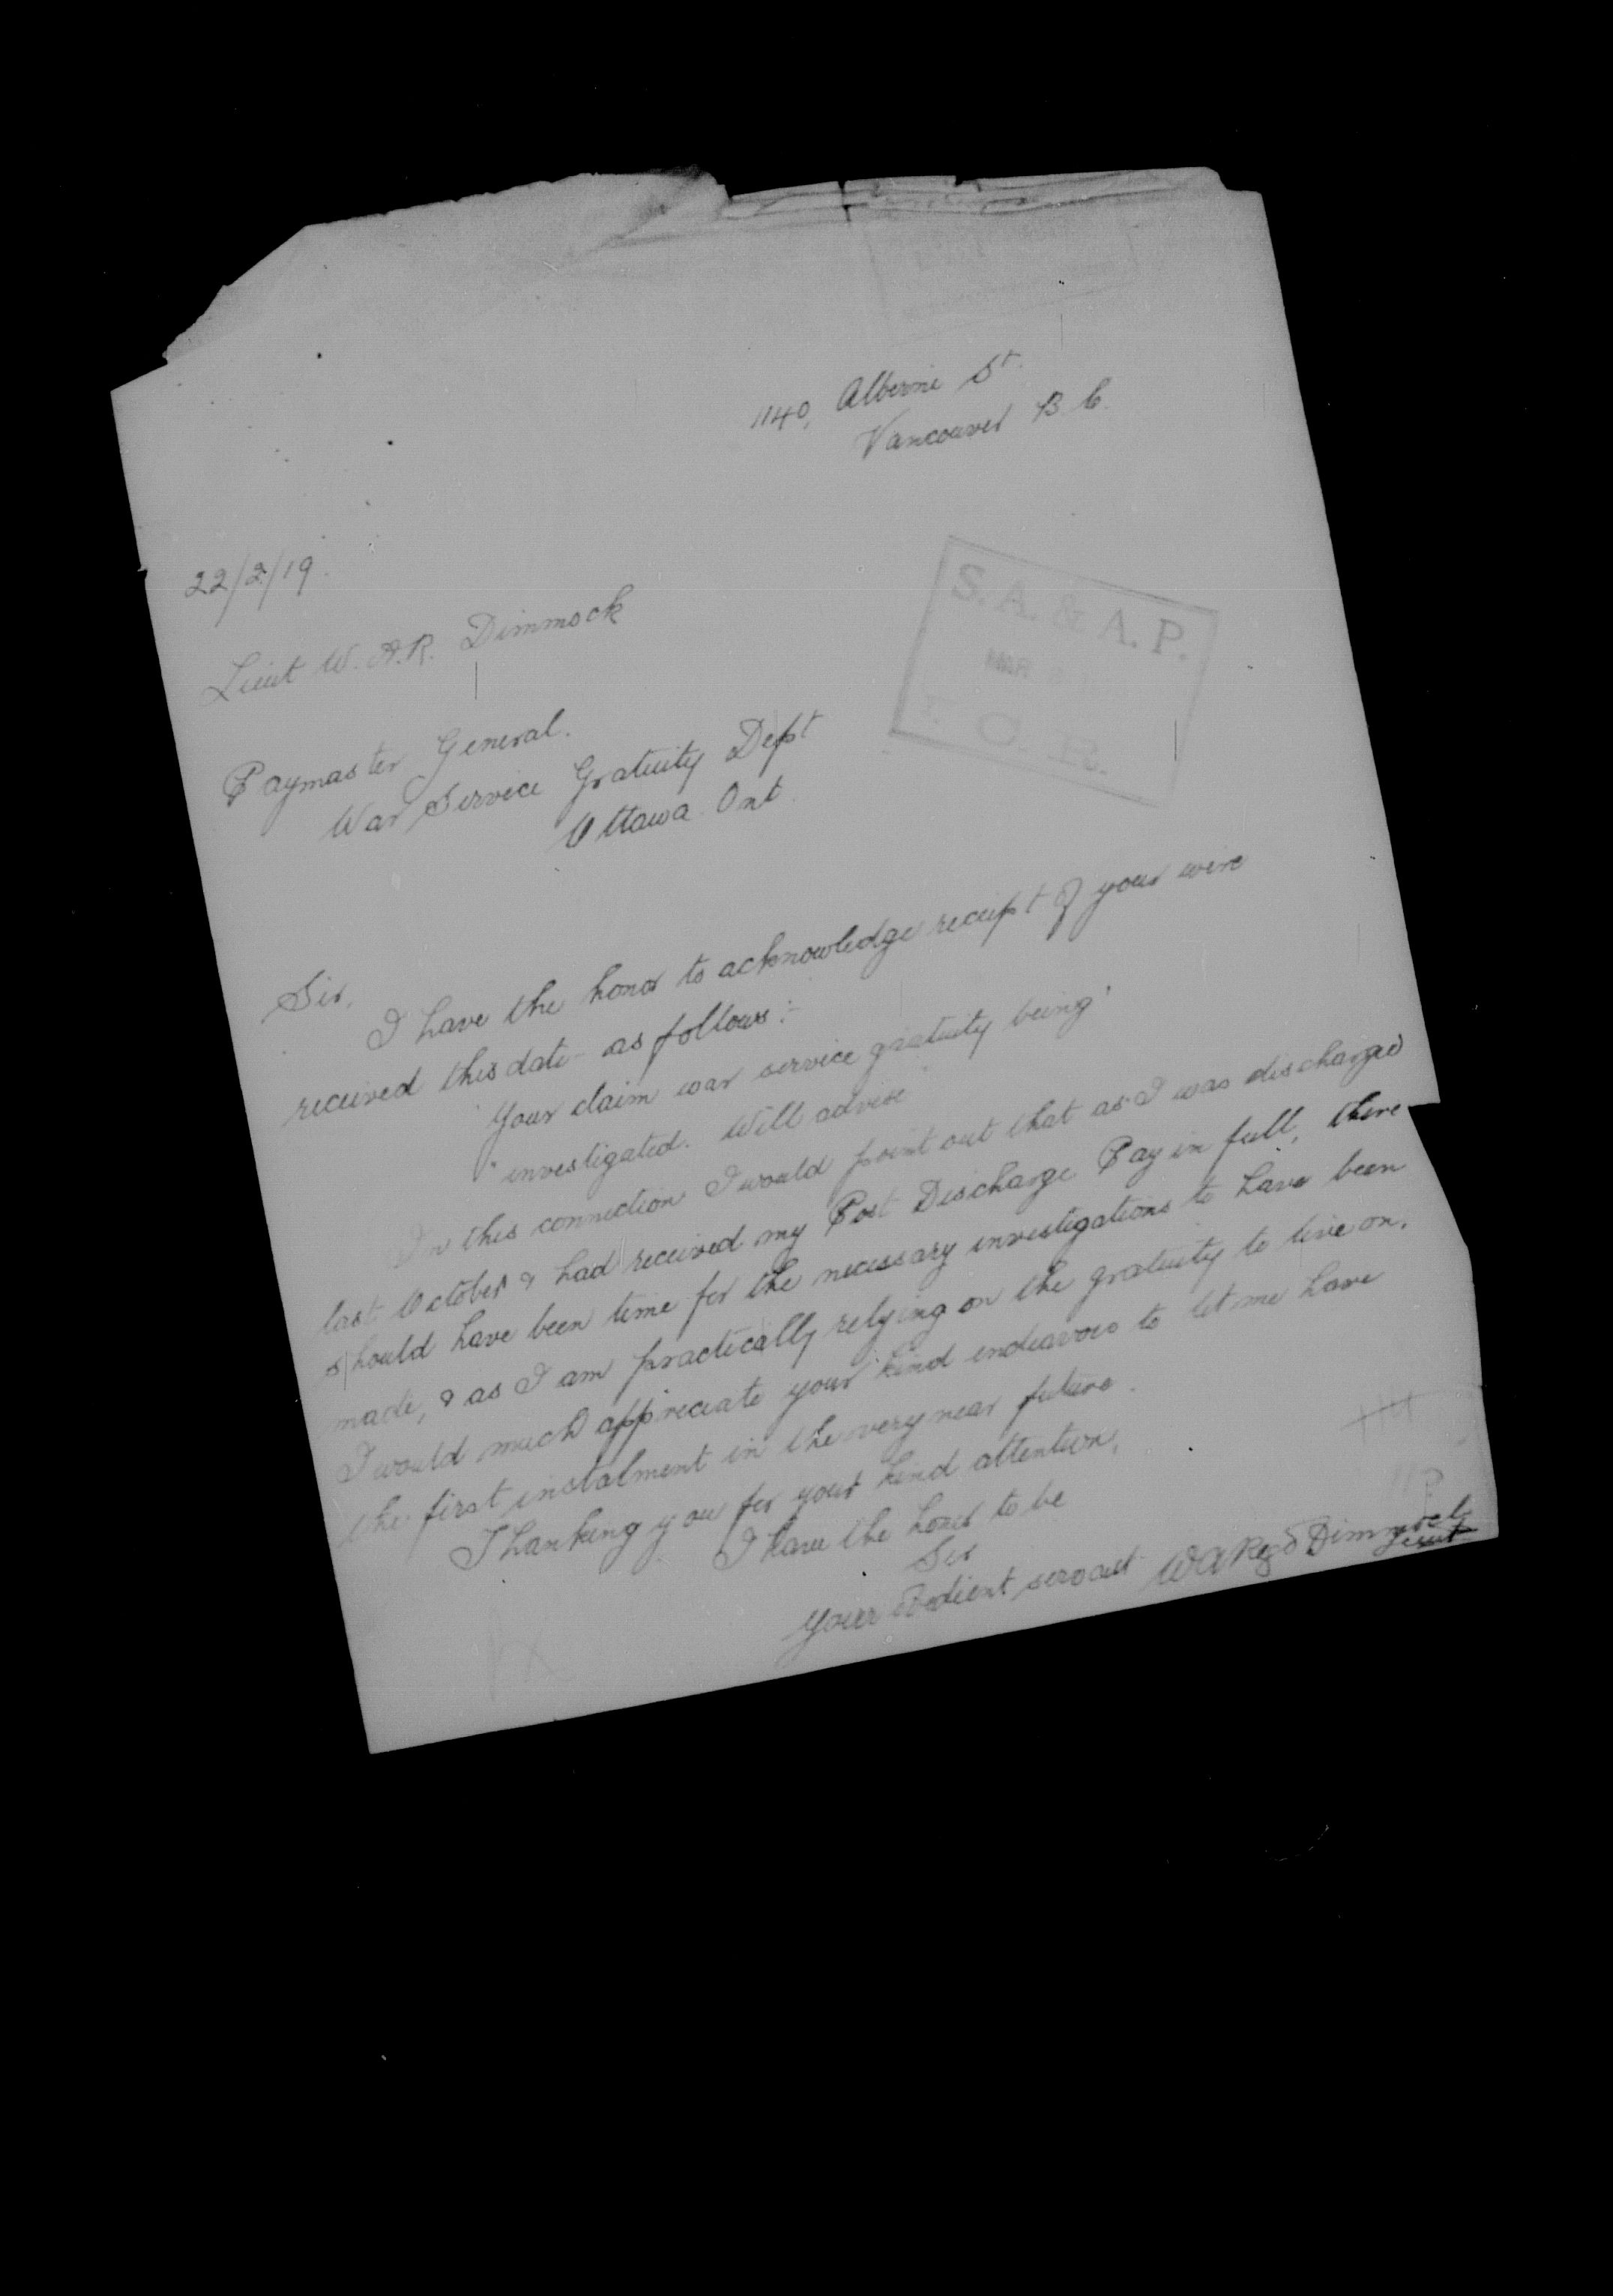 1140, Alberni St.
Vancouver B C.
22/2/19.
Lieut W. A.R. Dimmock
S. A. & A. P.
MAR
Paymaster General.
War Service Gratuity Dept
Ottawa Ont
Sir,
I have the honor to acknowledge receipt of your wire
received this date as follows:-
"Your claim war service gratuity being'
"investigated. Will advise"
In this connection I would point out that as I was discharged
last October & had received my Post Discharge Pay in full, there
should have been time for the necessary investigations to have been
made, & as I am practically relying on the gratuity to live on,
I would much appreciate your kind endeavors to let me have
the first instalment in the very near future.
Thanking you for your kind attention,
I have the honor to be
Sir
Your obedient servant W A Regd Dimmock
Lieut